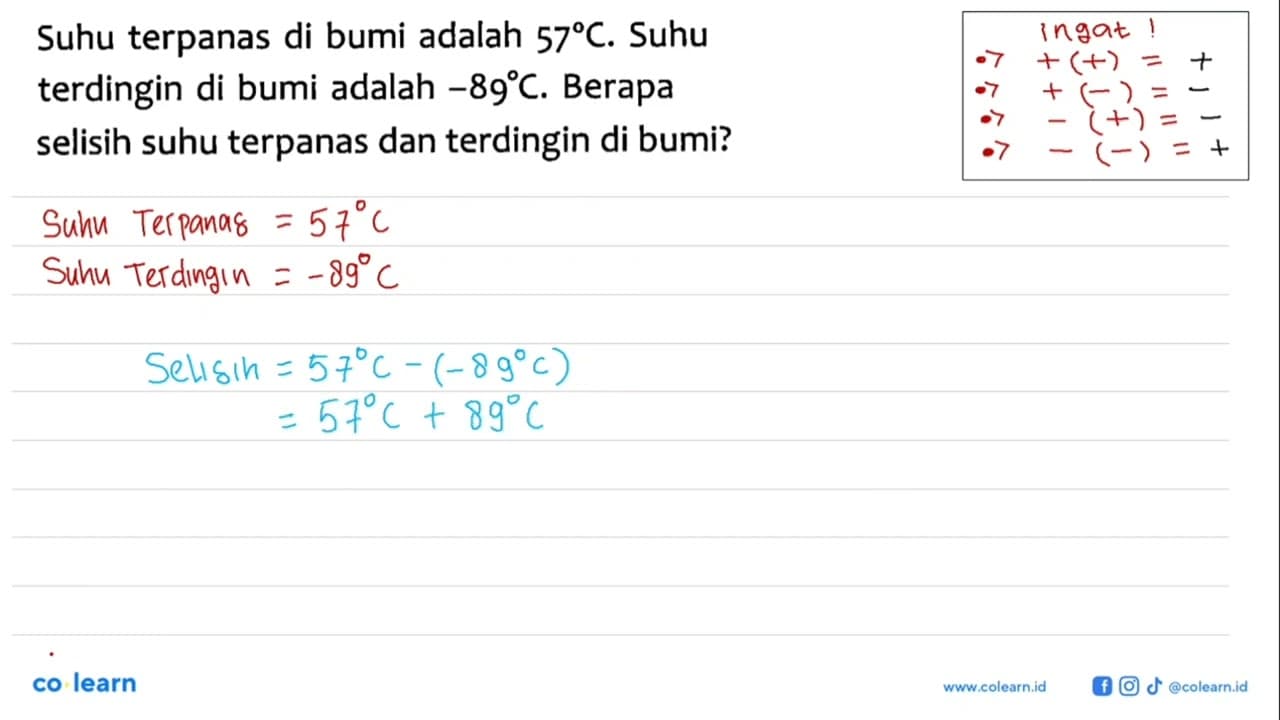 Suhu terpanas di bumi adalah 57°C. Suhu
terdingin di bumi adalah –89°C. Berapa
selisih suhu terpanas dan terdingin di bumi?
ingat !
•→ + (+) = +
•→ + (−) = −
•→ − (+) = −
•→ − (−) = +
Suhu Terpanas = 57°C
Suhu Terdingin = -89°C
Selisih = 57°C - (-89°C)
= 57°C + 89°C
co learn
www.colearn.id
@colearn.id